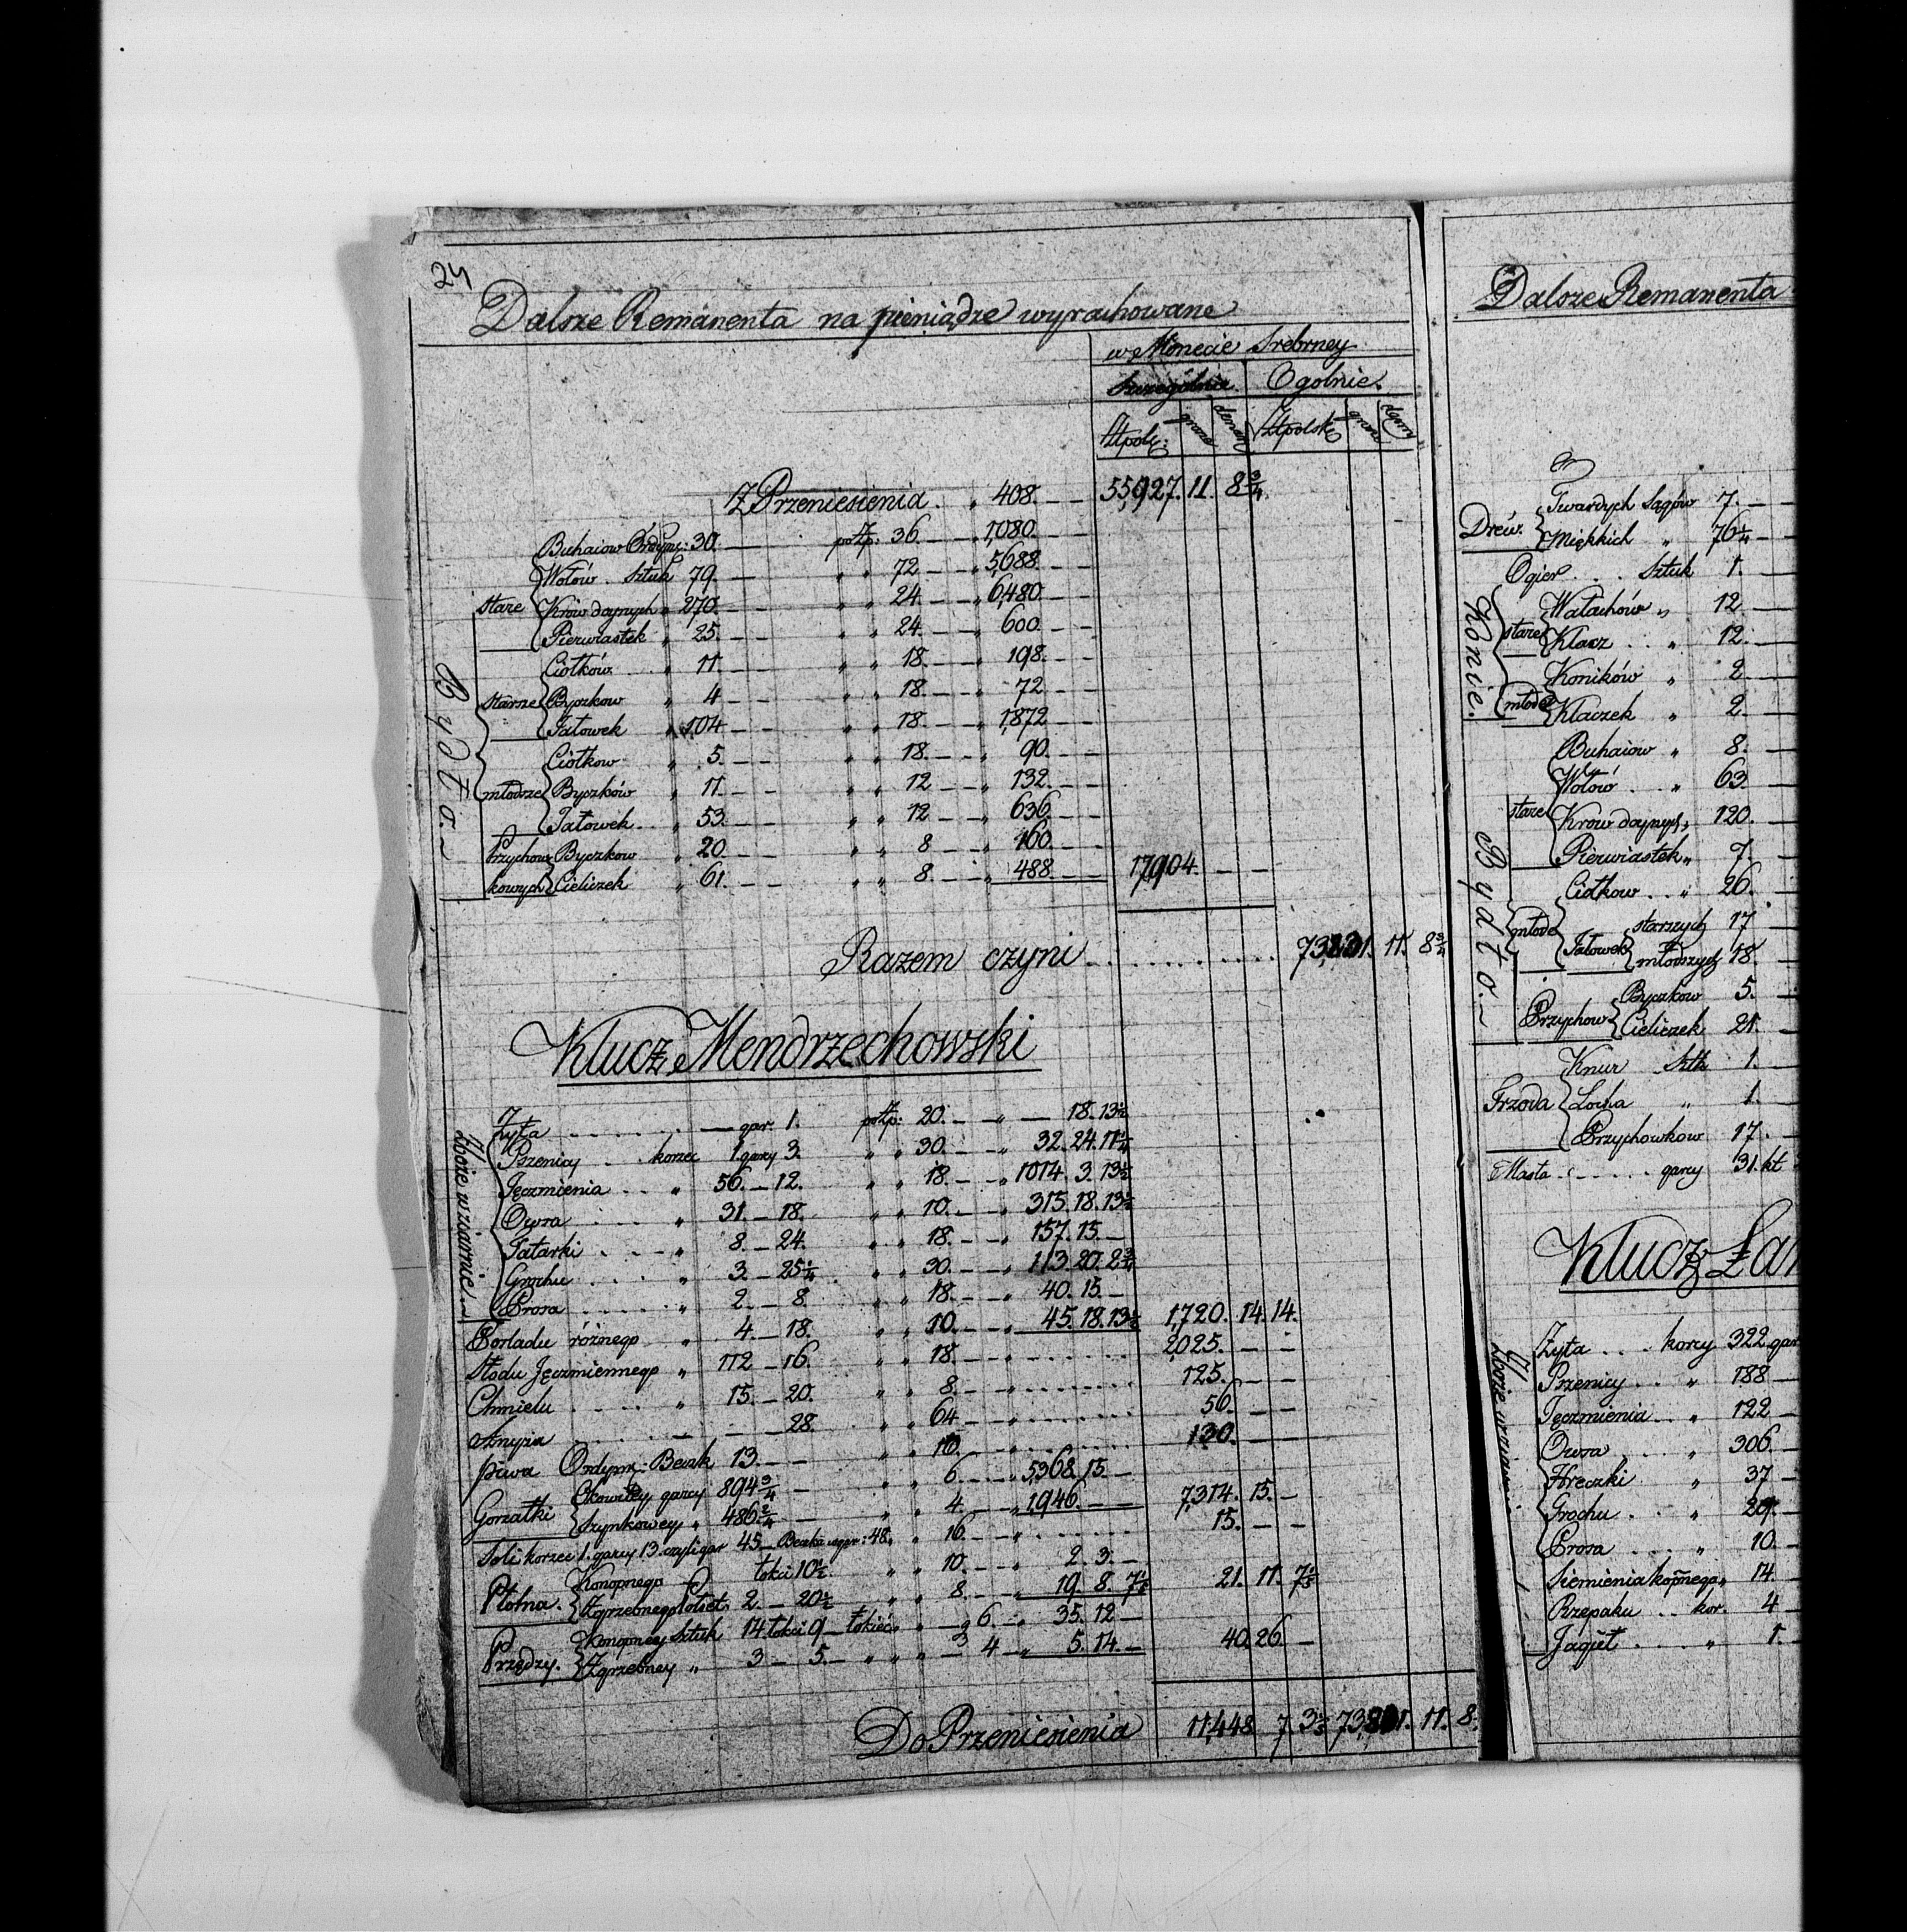 24
Dalsze Remanenta na pieniądze wyrachowane
w Monecie Srebrney
Szczegulnie. Ogolnie.
Ztpolс: grosze denary Ztpolskie grosze dgarry
Z Przeniesienia . „ 408. — 55,927. 11. 8¾.
Bydło.
stare
Buhaiow Ordynąc: 30. — po Zp: 36. — „ 1,080. —
Wołów . Sztuk 79. — „ „ 72. — „ 5,688. —
Krów doynych „ 270. — „ „ 24. — „ 6,480. —
Pierwiastek „ 25. — „ „ 24. — „ 600. —
starsze
Ciołków „ 11. — „ „ 18. — „ 198. —
Byczkow „ 4 — „ „ 18. — „ 72 —
Jałowek „ 104 — „ „ 18. — „ 1,872 —
młodsze
Ciołkow „ 5. — „ „ 18. — „ 90. —
Byczków „ 11. — „ „ 12 — „ 132. —
Jałowek „ 53. — „ „ 12 — „ 636. —
Przychow kowych
Byczkow „ 20. — „ „ 8 — „ 160. —
Cieliczek „ 61. — „ „ 8. — „ 488. — 17,904. — —
Razem czyni . . . . . 73,831. 11. 8¾
Klucz Mendrzechowski
Zboże w ziarnie
Żyta . . . . — gar. 1. po Zp: 20. — „ — 18. 13½
Pszenicy . . korzec 1. garcy 3. „ „ 30. — „ 32. 24. 11¼
Jęczmienia . . „ 56. — 12. „ „ 18. — „ 1014. 3. 13½
Owsa . . . „ 31. — 18. „ „ 10. — „ 315. 18. 13½
Tatarki . . . „ 8. — 24. „ „ 18. — „ 157. 15. —
Grochu . . . „ 3. — 25¼ . „ „ 30. — „ 113. 20. 2¾
Prosa . . . . „ 2. — 8. „ „ 18. — „ 40. 15. —
Posladu różnego „ 4. — 18. „ „ 10. — „ 45. 18. 13½ 1,720. 14. 14.
Słodu Jęczmiennego „ 112 — 16. „ „ 18. — „ . . . . 2,025. — —
Chmielu . . . „ 15. — 20. „ „ 8. — „ . . . . 125. — —
Anyżu . . . — — 28. „ „ 64 — „ . . . . 56. — —
Piwa Ordynąr: Beczk 13. — — „ „ 10. — „ . . . . 130. — —
Gorzałki
Okowitey garcy 894¾ — „ „ 6 — „ 5,368. 15. —
Szynkowey „ 486²⁄₄ — „ „ 4. — „ 1,946. — — 7,314. 15. —
Soli korzec 1. garcy 13. czyli gar 45 — Beczka w gar: 48. „ „ 16. — „ . . . . 15. — —
Płotna.
Konopnego łokci 10½. „ „ 10. — „ 2. 3. —
Zgrzebnego Półset. 2. — 20½ „ „ 8. — „ 19. 8. 7½ 21. 11. 7½
Przędzy.
Konopney Sztuk 14 łokci 9 — łokieć „ „ — 6. — „ 35. 12. —
Zgrzebney „ 3 — 5. — „ „ „ — 4 — „ 5. 14. — 40. 26. —
Do Przeniesienia 11,448. 7. 3½ 73,831. 11. 8.
Dalsze Remanenta
Drew.
Twardych Sągów 7. —
Miękkich „ 76¼ —
Ogier . . . Sztuk 1. —
Konie.
stare
Wałachów „ 12.
Klacz . . „ 12. —
młode
Koników „ 2
Klaczek „ 2. —
Bydło.
stare
Buhaiow „ 8. —
Wołów . . „ 63.
Krow doynych „ 120.
Pierwiastek „ 7.
młode
Ciołkow . . „ 26.
Jałowek
starszych 17
młodszych 18.
Przychow
Byczkow 5. —
Cieliczek 21.
Trzoda
Knur . Sztk 1. —
Locha „ 1. —
Przychowkow 17. —
Masła . . . . . garcy 31. kt
Klucz Łan
Zboże w ziarnie
Żyta . . . korcy 322. gar
Pszenicy . . „ 188 —
Jęczmienia . . „ 122 —
Owsa . . . „ 306. —
Hreczki „ 37 —
Grochu . . „ 29. —
Prosa . . . „ 10. —
Siemienia kopnego „ 14. —
Rzepaku . . kor. 4 —
Jagieł . . . „ 1. —